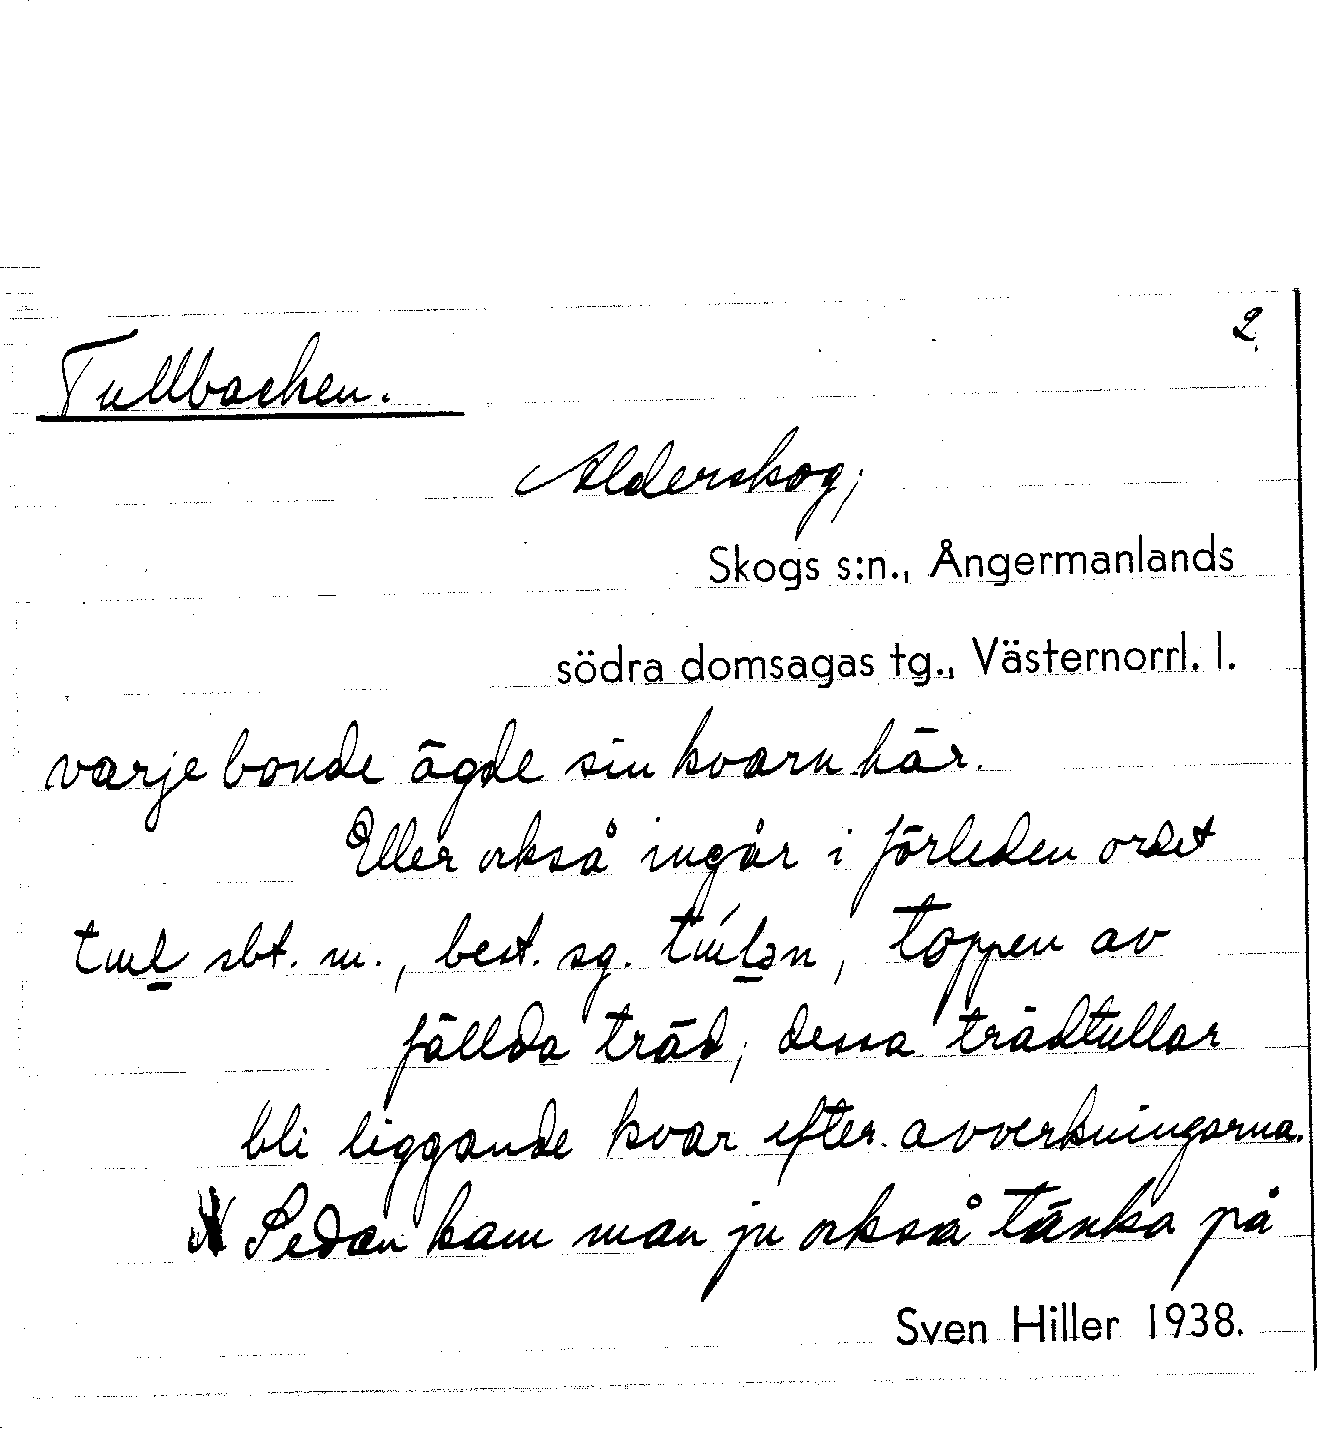 2.
Tullbacken.
Alderskog;
Skogs s:n., Ångermanlands
södra domsagas tg., Västernorrl. l.
varje bonde ägde sin kvarn här.
Eller också ingår i förleden ordet
tɯl sbt. m., best. sg. tɯ́lən, toppen av
fällda träd; dessa trädtullar
bli liggande kvar efter avverkningarna.
Sedan kam man ju också tänka på
Sven Hiller 1938.